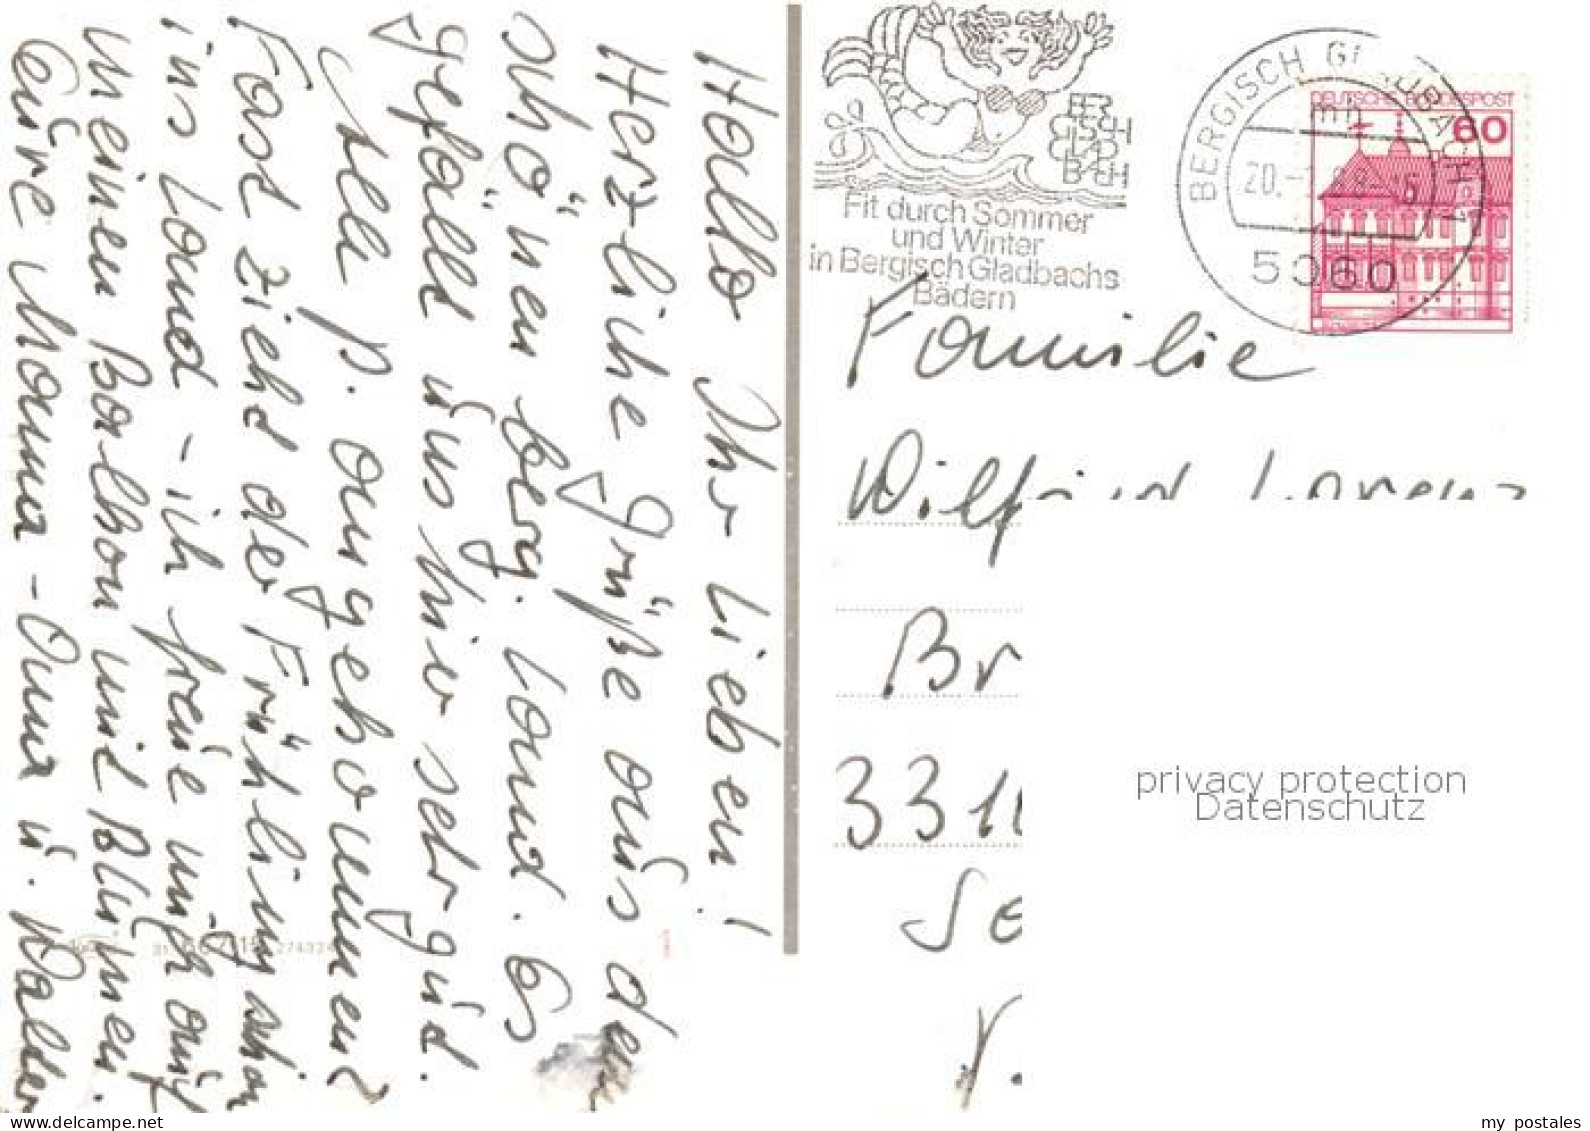 Hallo Ihr Lieben!
Herzliche Grüße aus dem
schönen berg. Land. Es
gefällt uns hier sehr gut.
P. angekommen?
Fast zieht der Frühling schon
ins Land - ich freue mich auf
meinen Balkon mit Blumen.
Eure Mama - Oma u. Walter
BERGISCH GLADBACH
Fit durch Sommer
und Winter
in Bergisch Gladbachs
Bädern
BERGISCH GLADBACH 1
20.
5060
DEUTSCHE BUNDESPOST
60
Familie
Wilfried Lorenz
Br
331
Se
privacy protection
Datenschutz
www.ansichtskarten-center.de
my postales